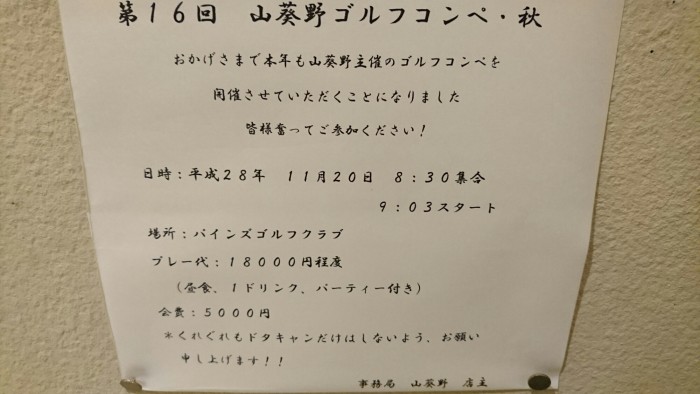 第16回　山葵野ゴルフコンペ・秋
おかげさまで本年も山葵野主催のゴルフコンペを
開催させていただくことになりました
皆様奮ってご参加ください！
日時：平成28年　11月20日　8：30集合
9：03スタート
場所：パインズゴルフクラブ
プレー代：18000円程度
（昼食、1ドリンク、パーティー付き）
会費：5000円
＊くれぐれもドタキャンだけはしないよう、お願い
申し上げます！！
事務局　山葵野　店主